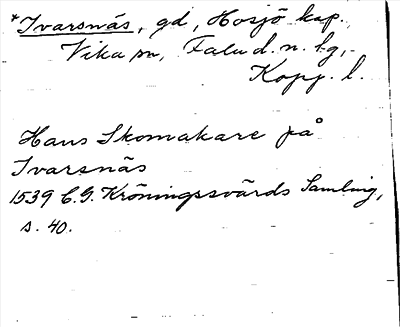 *Ivarsnäs, gd, Hosjö kap.,
Vika sn, Falu d. n. bg,
Kopp. l.
Hans Skomakare på
Ivarsnäs
1539 C. G. Kröningssvärds Samling,
s. 40.